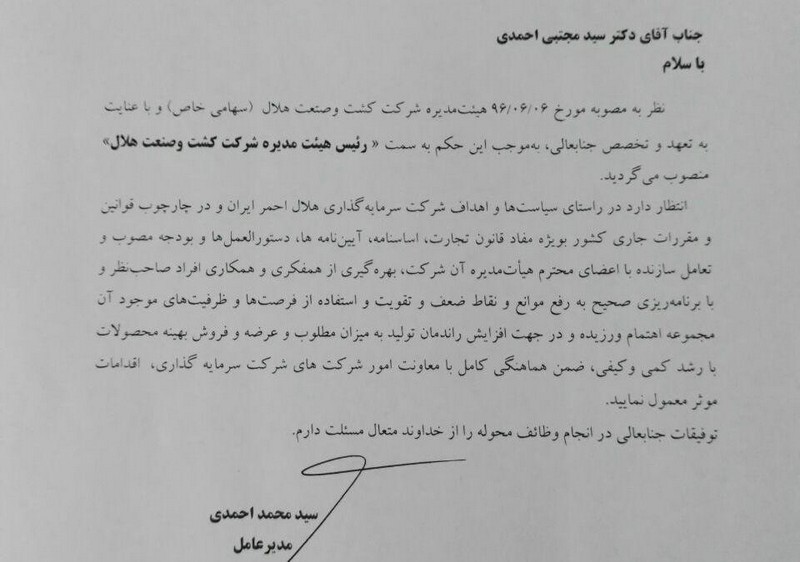 جناب آقای دکتر سید مجتبی احمدی
با سلام
نظر به مصوبه مورخ ۹۶/۰۶/۰۶ هیئت‌مدیره شرکت کشت وصنعت هلال (سهامی خاص) و با عنایت
به تعهد و تخصص جنابعالی، به‌موجب این حکم به سمت « رئیس هیئت مدیره شرکت کشت وصنعت هلال»
منصوب می‌گردید.
انتظار دارد در راستای سیاست‌ها و اهداف شرکت سرمایه‌گذاری هلال احمر ایران و در چارچوب قوانین
و مقررات جاری کشور بویژه مفاد قانون تجارت، اساسنامه، آیین‌نامه ها، دستورالعمل‌ها و بودجه مصوب و
تعامل سازنده با اعضای محترم هیأت‌مدیره آن شرکت، بهره‌گیری از همفکری و همکاری افراد صاحب‌نظر و
با برنامه‌ریزی صحیح به رفع موانع و نقاط ضعف و تقویت و استفاده از فرصت‌ها و ظرفیت‌های موجود آن
مجموعه اهتمام ورزیده و در جهت افزایش راندمان تولید به میزان مطلوب و عرضه و فروش بهینه محصولات
با رشد کمی وکیفی، ضمن هماهنگی کامل با معاونت امور شرکت های شرکت سرمایه گذاری، اقدامات
موثر معمول نمایید.
توفیقات جنابعالی در انجام وظائف محوله را از خداوند متعال مسئلت دارم.
سید محمد احمدی
مدیرعامل